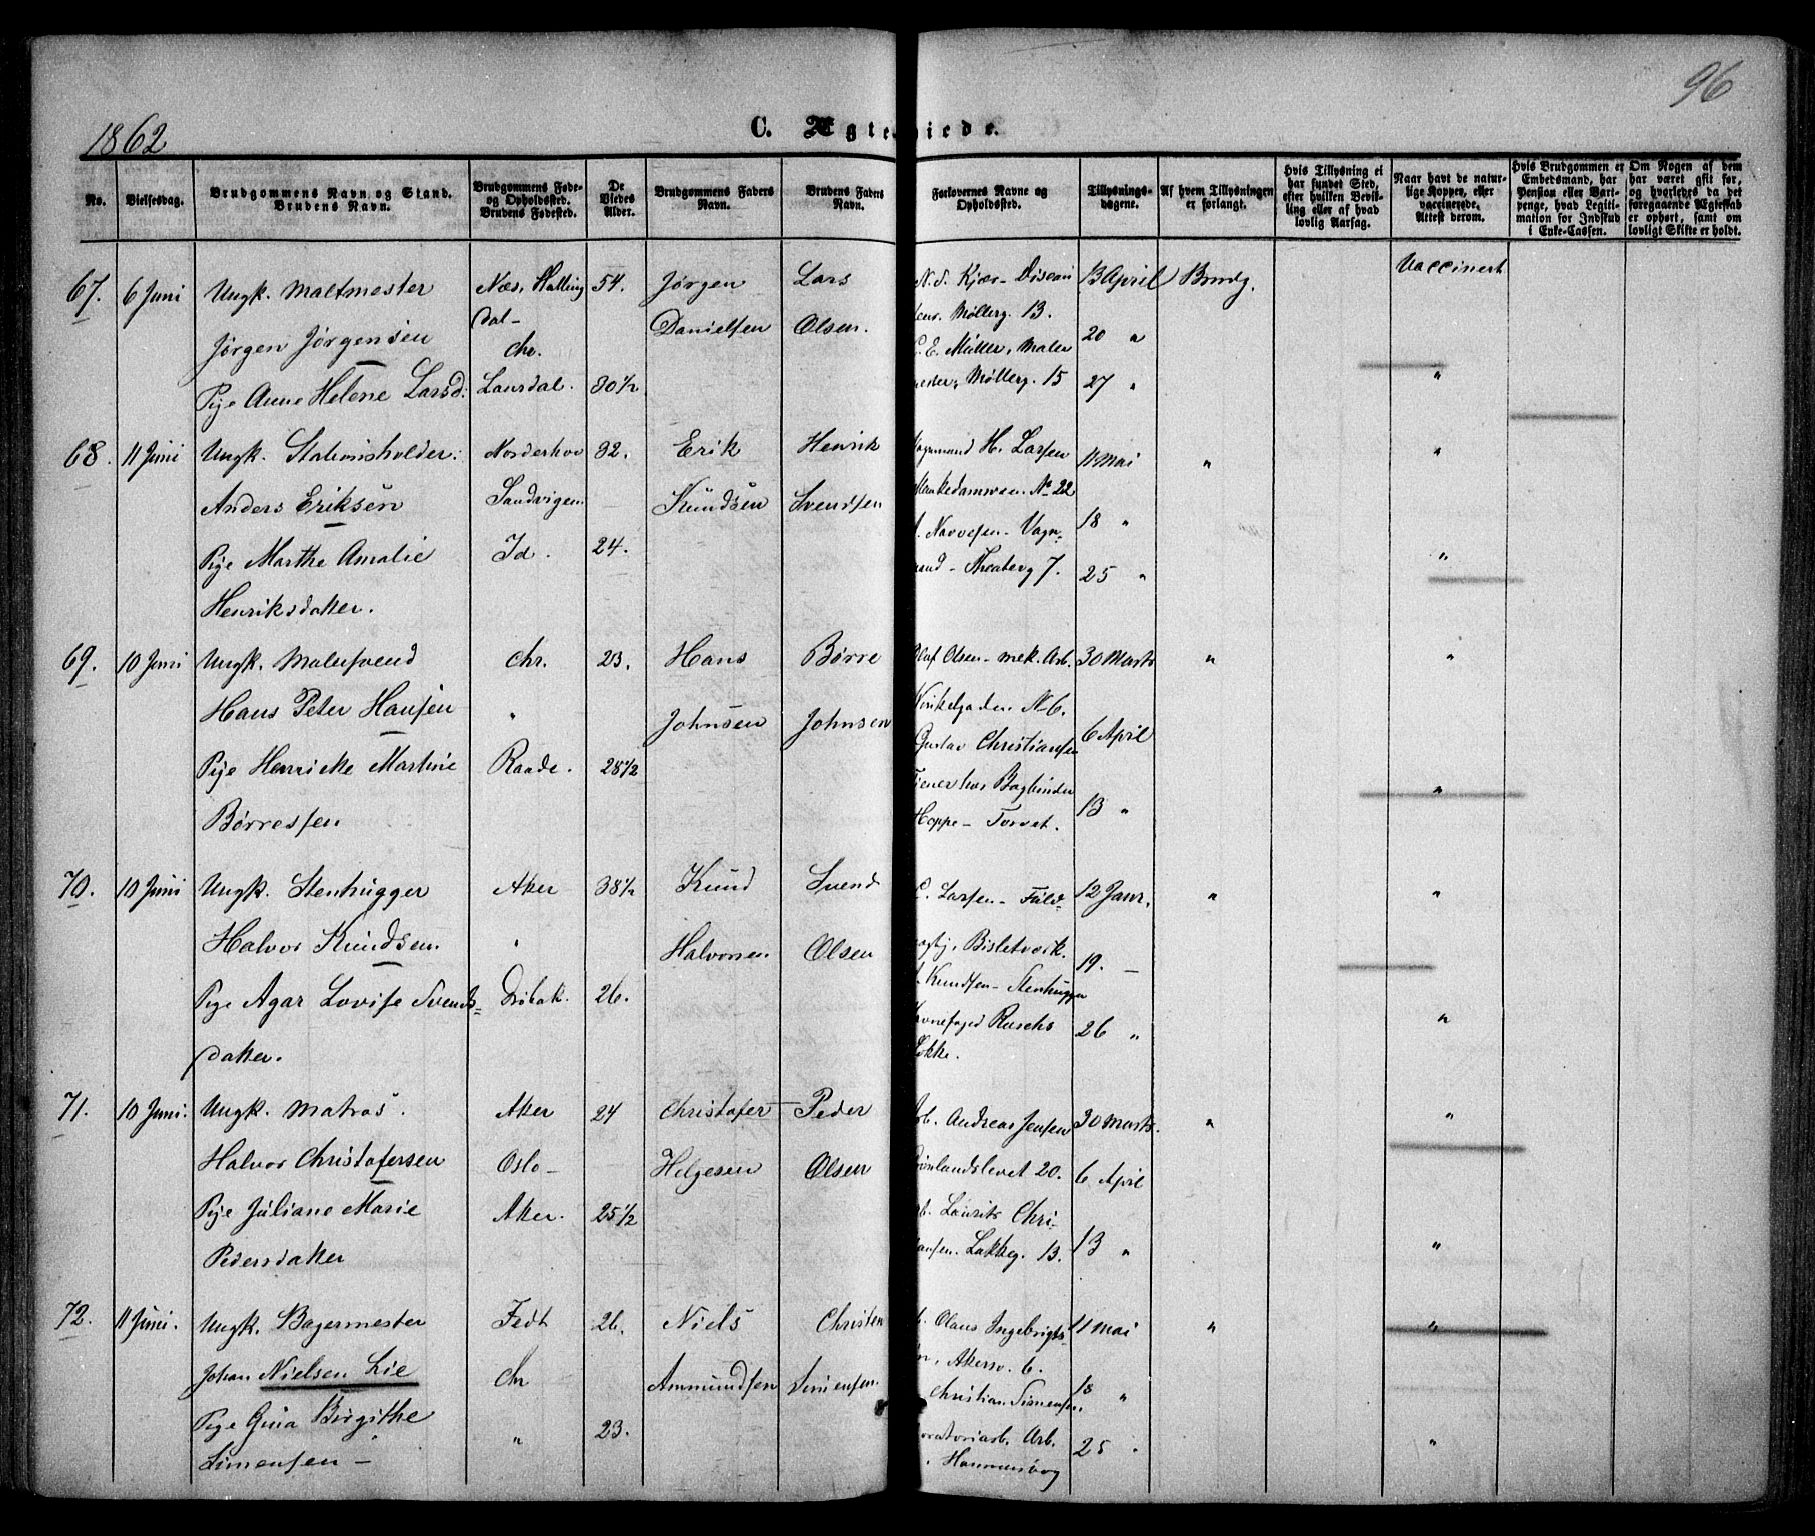 96
1862
C. Ægteviede.
No.
Vielsesdag.
Brudgommens Navn og Stand.
Brudens Navn.
Brudgommens Føde-
og Opholdssted.
Brudens Fødested.
De
Viedes
Alder.
Brudgommens Faders
Navn.
Brudens Faders
Navn.
Forlovernes Navne og
Opholdssted.
Tillysnings-
dagene.
Af hvem Tillysningen
er forlangt.
Hvis Tillysning ei
har fundet Sted,
efter hvilken Bevil-
ling eller af hvad
lovlig Aarsag.
Naar havt de natur-
lige Kopper, eller
vaccinerede.
Attest derom.
Hvis Brudgommen er
Embedsmand, har
Pension eller Vart-
penge, hvad Legiti-
mation for Indskud
i Enke-Cassen.
Om Nogen af dem
har været gift før,
og hvorledes da det
foregaaende Ægteskab
er ophørt, samt om
lovligt Skifte er holdt.
67. 6 Juni Ungk. Maltmester Næs, Halling 54. Jørgen Lars N. S. Kjær 13 April Brudg. Vaccinert
dal- Danielsen Olsen. Møllerg. 13.
Jørgen Jørgensen Chr. C. E. Müller, Maler 20 "
Pige Anne Helene Larsd: Laurdal. 30 1/2 mester, Møllerg. 15 27 " "
68. 11 Juni Ungk. Stationsholder: Norderhov 32. Erik Henrik Vognmand H. Larsen 11 Mai " "
Anders Eriksen Sandvigen Knudsen Svendsen No 22 18 "
Pige Marthe Amalie Id. 24. Navvesen- Vogn- "
Henriksdatter. mand- Theaterg 7. 25 "
69. 10 Juni Ungk. Malersvend Chr. 23. Hans Børre Oluf Olsen- mek. Arb. 30 Marts " "
Hans Peter Hansen " Johnsen Johnsen Vinkelgaden No 6. 6 April
Pige Henricke Martine Raade. 28 1/2 Gustav Christiansen
Børresen Tjener hos Bogbinder 13 " "
Hoppe- Torvet.
70. 10 Juni Ungk. Stenhugger Aker 38 1/2 Knud Svend C. Larsen- 12 Janr. " "
Halvor Knudsen. " Halvorsen Olsen Bisletverk. 19. -
Pige Agar Lovise Svends- Drøbak. 26. Knudsen- Stenhugger
datter. Ruschs 26 " "
Løkke.
71. 10 Juni. Ungk. Matros. Aker 24 Christofer Peder Arb. Andreas Jensen 30 Marts. " "
Halvor Christofersen Oslo- Helgesen Olsen Grønlandsleret 20. 6 April
Pige Juliane Marie Aker. 25 1/2 Arb. Laurits Chri-
Pedersdatter stiansen. Lakkeg. 13. 13 " "
72. 11 Juni. Ungk. Bagermester Fedt 26. Niels Christen Olaus Ingebrigts- 11 Mai " "
Johan Nielsen Lie Chr Ammundsen Simensen. Akersv. 6.
Pige Gina Birgithe " 23. Christian Simensen, 18 "
Simensen - Arb. 25 " "
Hammersborg